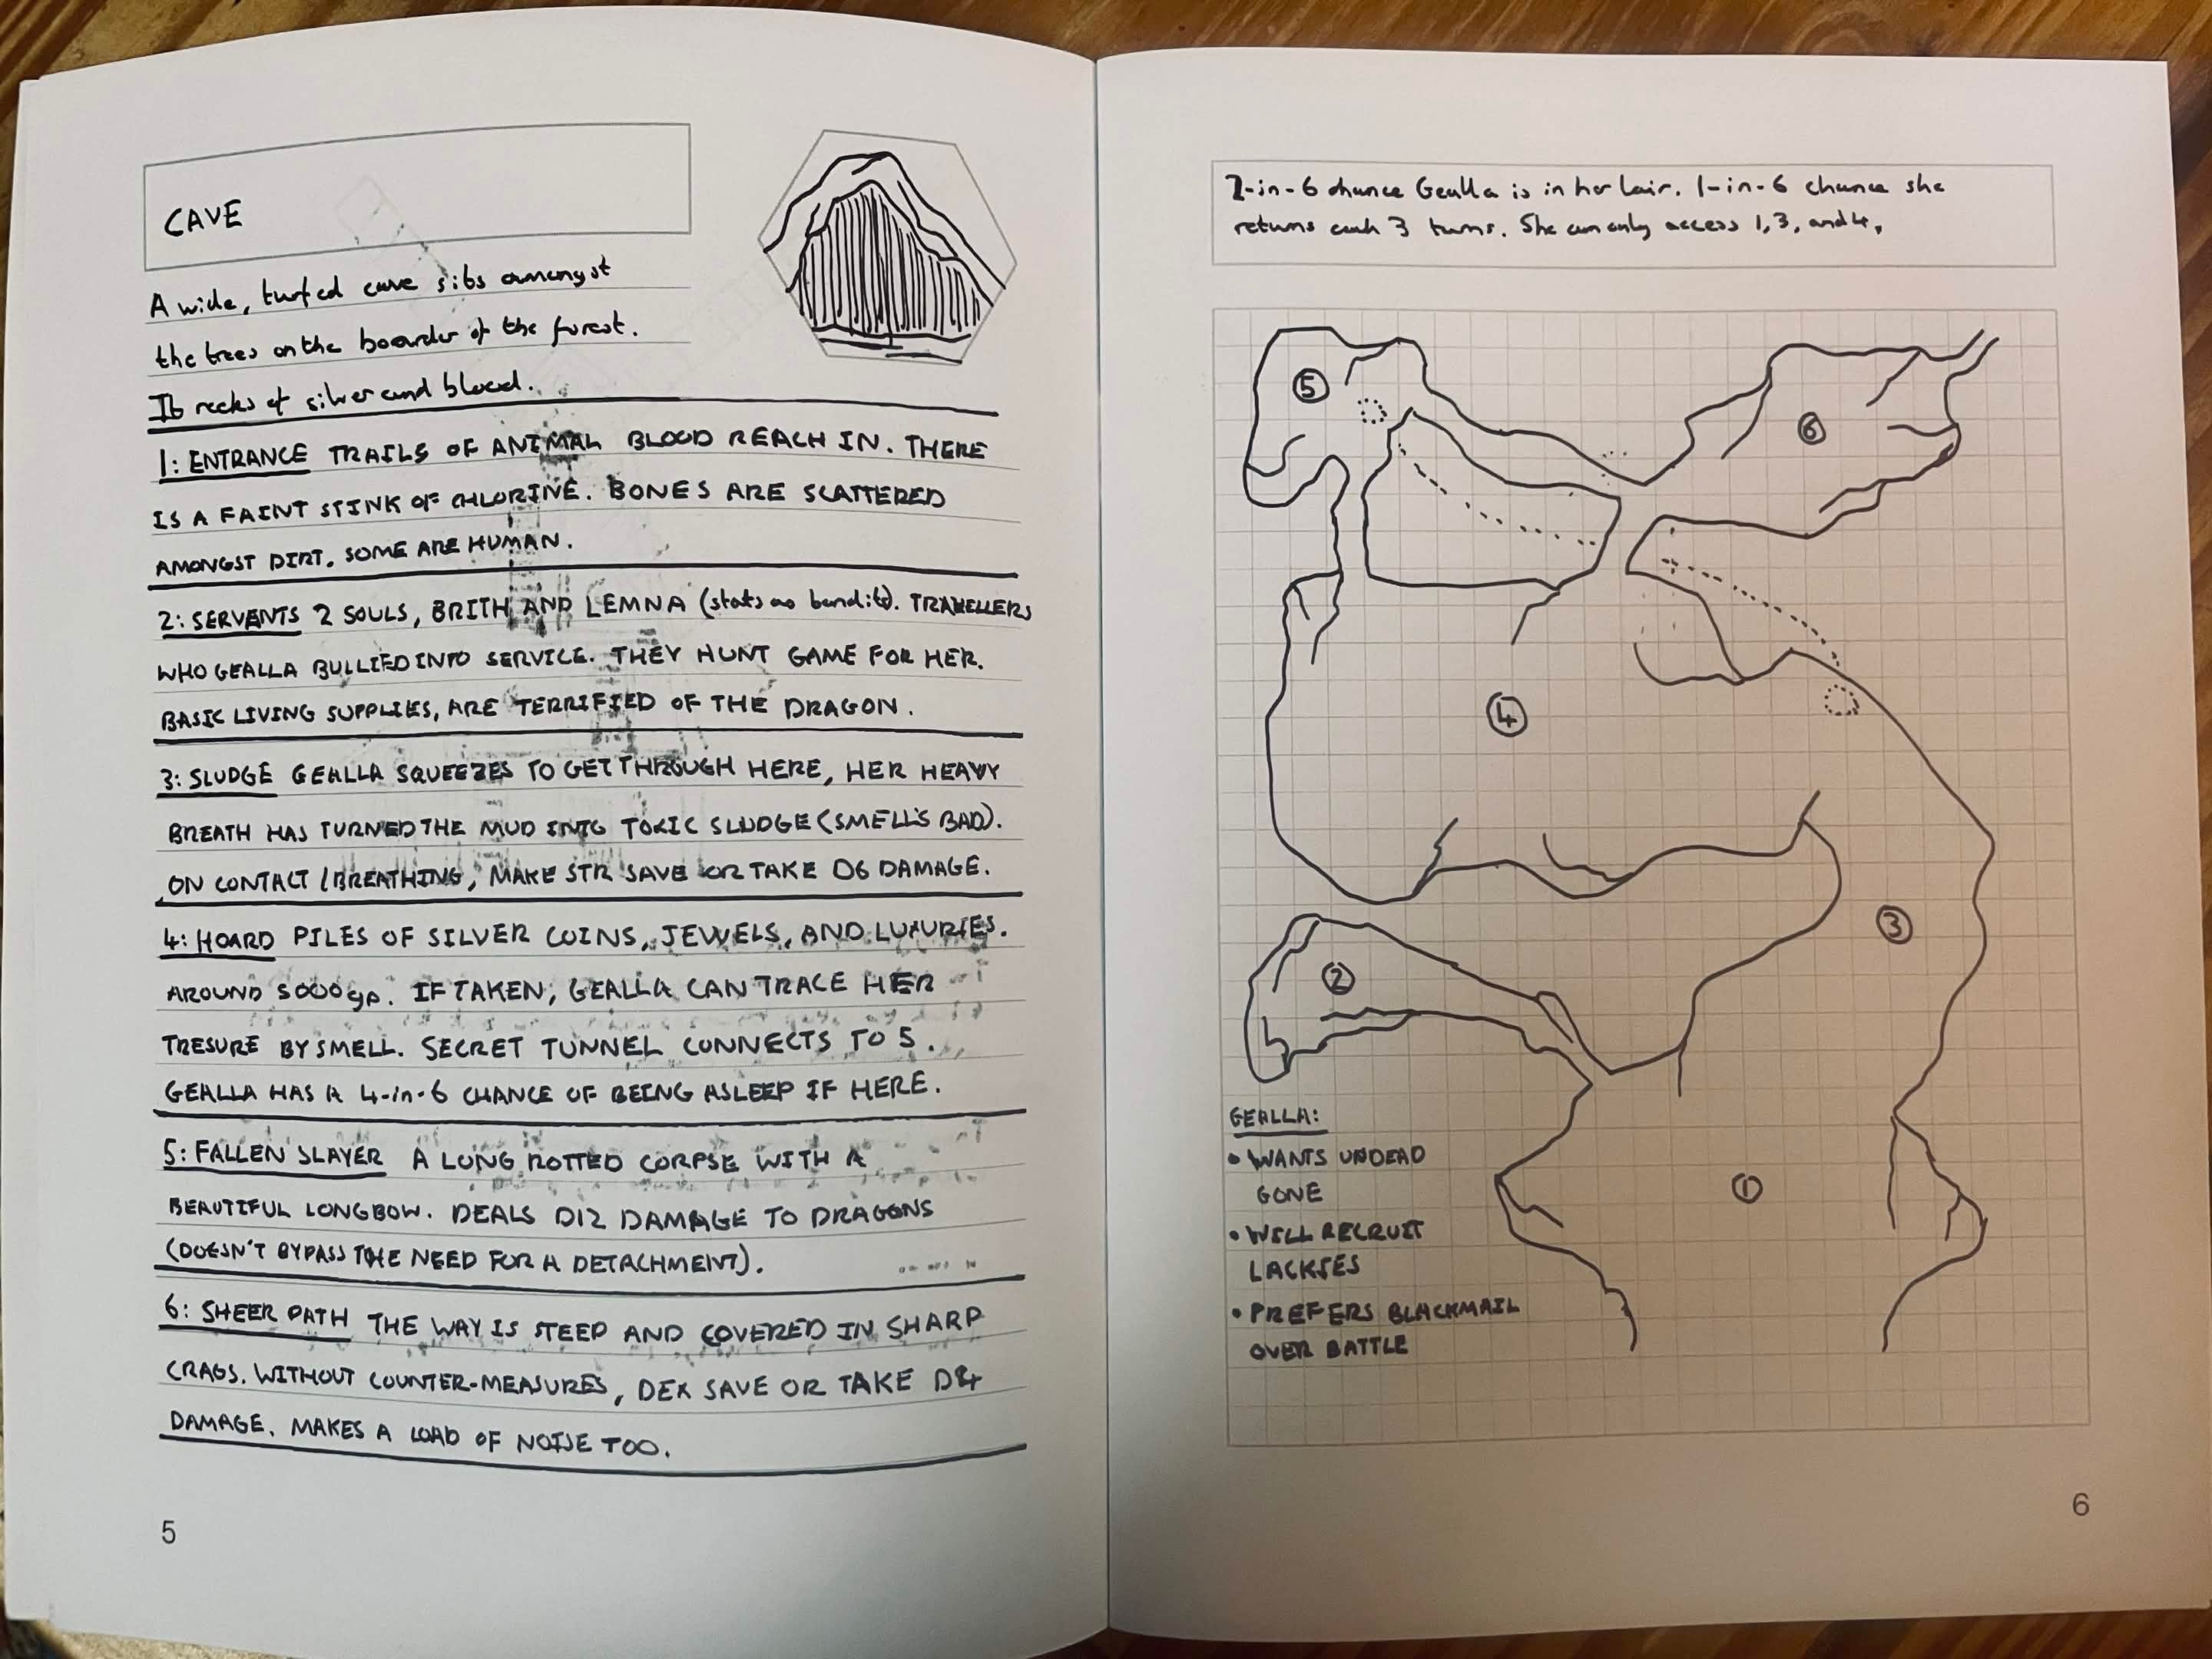 CAVE
A wide, turfed cave sits amongst
the trees on the boarder of the forest.
It reeks of silver and blood.
1: ENTRANCE TRAILS OF ANIMAL BLOOD REACH IN. THERE
IS A FAINT STINK OF CHLORINE. BONES ARE SCATTERED
AMONGST DIRT. SOME ARE HUMAN.
2: SERVENTS 2 SOULS, BRITH AND LEMNA (stats as bandits). TRAVELLERS
WHO GEALLA BULLIED INTO SERVICE. THEY HUNT GAME FOR HER.
BASIC LIVING SUPPLIES, ARE TERRIFIED OF THE DRAGON.
3: SLUDGE GEALLA SQUEEZES TO GET THROUGH HERE, HER HEAVY
BREATH HAS TURNED THE MUD INTO TOXIC SLUDGE (SMELL'S BAD).
ON CONTACT / BREATHING, MAKE STR SAVE OR TAKE D6 DAMAGE.
4: HOARD PILES OF SILVER COINS, JEWELS, AND LUXURIES.
AROUND 5000gp. IF TAKEN, GEALLA CAN TRACE HER
TRESURE BY SMELL. SECRET TUNNEL CONNECTS TO 5.
GEALLA HAS A 4-in-6 CHANCE OF BEING ASLEEP IF HERE.
5: FALLEN SLAYER A LONG ROTTED CORPSE WITH A
BEAUTIFUL LONGBOW. DEALS D12 DAMAGE TO DRAGONS
(DOESN'T BYPASS THE NEED FOR A DETACHMENT).
6: SHEER PATH THE WAY IS STEEP AND COVERED IN SHARP
CRAGS. WITHOUT COUNTER-MEASURES, DEX SAVE OR TAKE D4
DAMAGE. MAKES A LOAD OF NOISE TOO.
5
2-in-6 chance Gealla is in her lair. 1-in-6 chance she
returns each 3 turns. She can only access 1, 3, and 4.
5
6
4
3
2
1
GEALLA:
• WANTS UNDEAD
GONE
• WILL RECRUIT
LACKIES
• PREFERS BLACKMAIL
OVER BATTLE
6